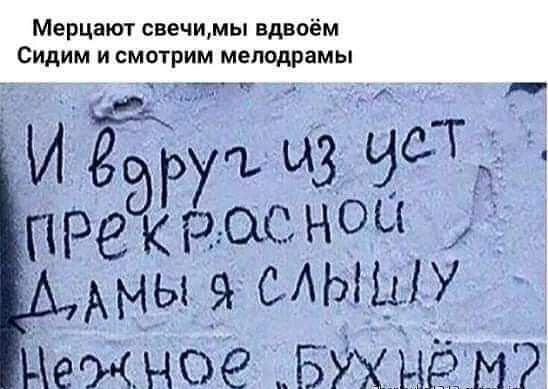 Мерцают свечи,мы вдвоём
Сидим и смотрим мелодрамы
И вдруг из уст
прекрасной
дамы я слышу
нежное „Бухнём?